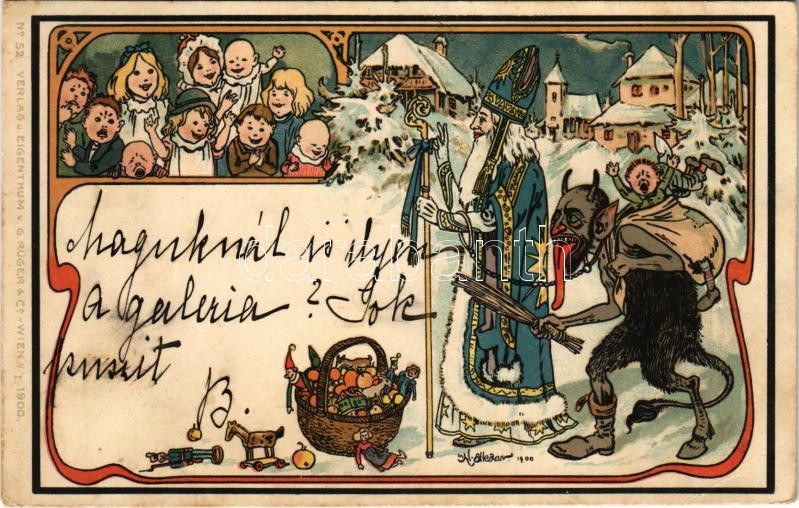 Nº 52. VERLAG u. EIGENTHUM v. G. RÜGER & Cº - WIEN V/1, 1900.
Maguknál is ilyen
a galeria? Sok
puszit
B.
1900
darabanth